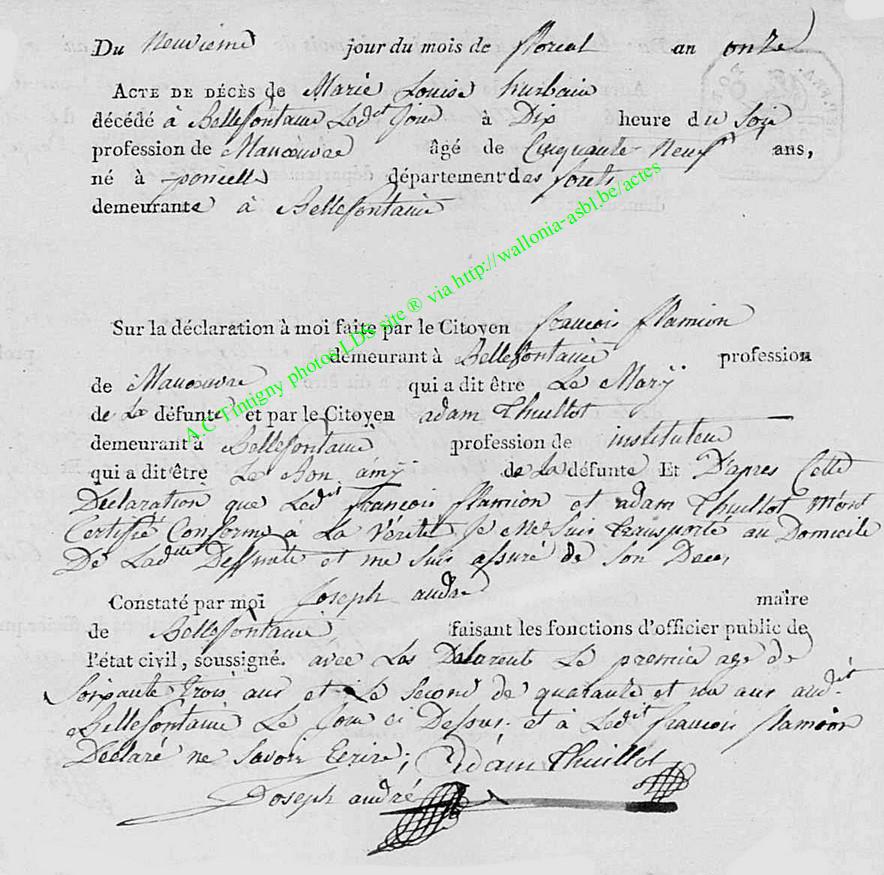 Du Neuvieme jour du mois de floreal an onze
ACTE DE DÉCÈS de Marie Louise hurbain
décédé à Bellefontaine Ledit Jour à Dix heure du Soir
profession de Manœuvre âgé de Cinquante Neuf ans,
né à poncelle département des forets
demeurante à Bellefontaine
Sur la déclaration à moi faite par le Citoyen francois flamion
demeurant à Bellefontaine profession
de Manœuvre qui a dit être Le Mary
de La défunte et par le Citoyen adam Thuillot
demeurant à Bellefontaine profession de instituteur
qui a dit être Le Bon amy de La défunte Et D'apres Cette
Declaration que Ledit francois flamion et adam Thuillot M'ont
Certifié Conforme à La Vérité Je Me Suis transporté au Domicile
De Ladite Deffunte et me suis assuré de Son Deces
Constaté par moi Joseph andre maire
de Bellefontaine faisant les fonctions d'officier public de
l'état civil, soussigné. avec Les Delarents Le premier age de
Soixante trois ans et Le Second de quarante et un ans audit
Bellefontaine Le Jour ci Dessus et à Ledit francois flamion
Declaré ne Savoir Ecrire; Adam Thuillot
Joseph andré
A.C Tintigny photos LDS site ® via http://wallonia-asbl.be/actes